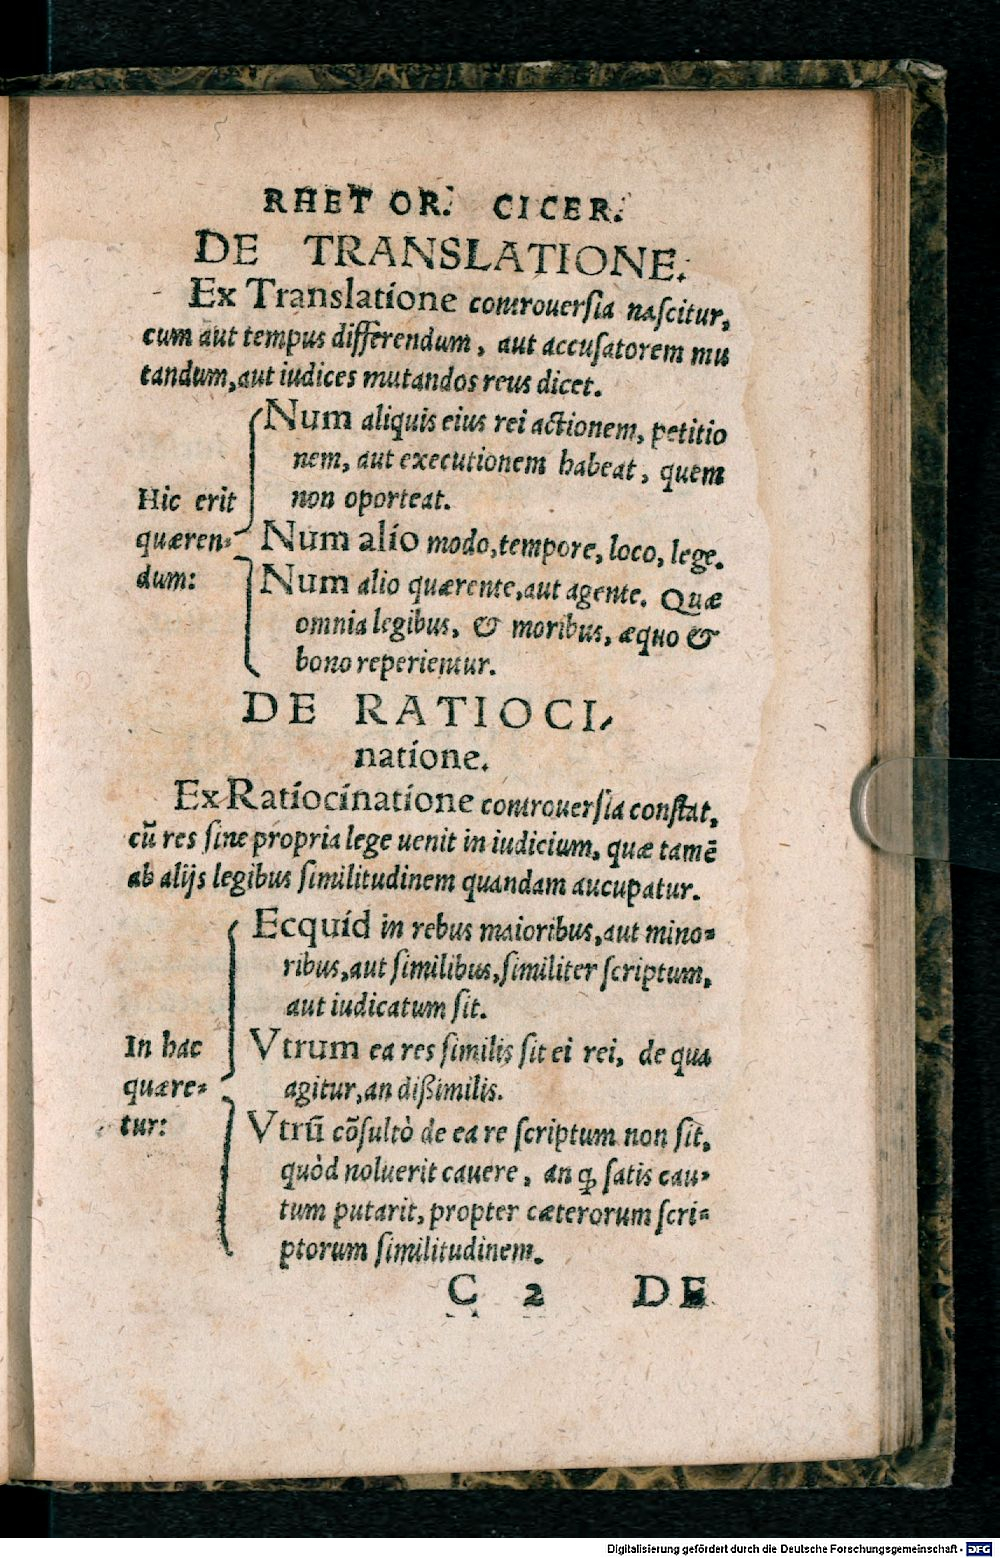 RHETOR. CICER.
DE TRANSLATIONE.
Ex Translatione controuersia nascitur,
cum aut tempus differendum, aut accusatorem mu
tandum, aut iudices mutandos reus dicet.
Num aliquis eius rei actionem, petitio
nem, aut executionem habeat, quem
non oporteat.
Hic erit
quæren-
dum:
Num alio modo, tempore, loco, lege.
Num alio quærente, aut agente. Quæ
omnia legibus, & moribus, æquo &
bono reperientur.
DE RATIOCI-
natione.
Ex Ratiocinatione controuersia constat,
cū res sine propria lege uenit in iudicium, quæ tamē
ab alijs legibus similitudinem quandam aucupatur.
Ecquid in rebus maioribus, aut mino-
ribus, aut similibus, similiter scriptum,
aut iudicatum sit.
In hac
quære-
tur:
Vtrum ea res similis sit ei rei, de qua
agitur, an dißimilis.
Vtrū cōsultò de ea re scriptum non sit,
quòd noluerit cauere, an ꝙ satis cau-
tum putarit, propter cæterorum scri-
ptorum similitudinem.
C 2 DE
Digitalisierung gefördert durch die Deutsche Forschungsgemeinschaft - DFG